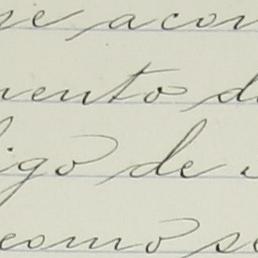 se acon
mento d
igo de
como se